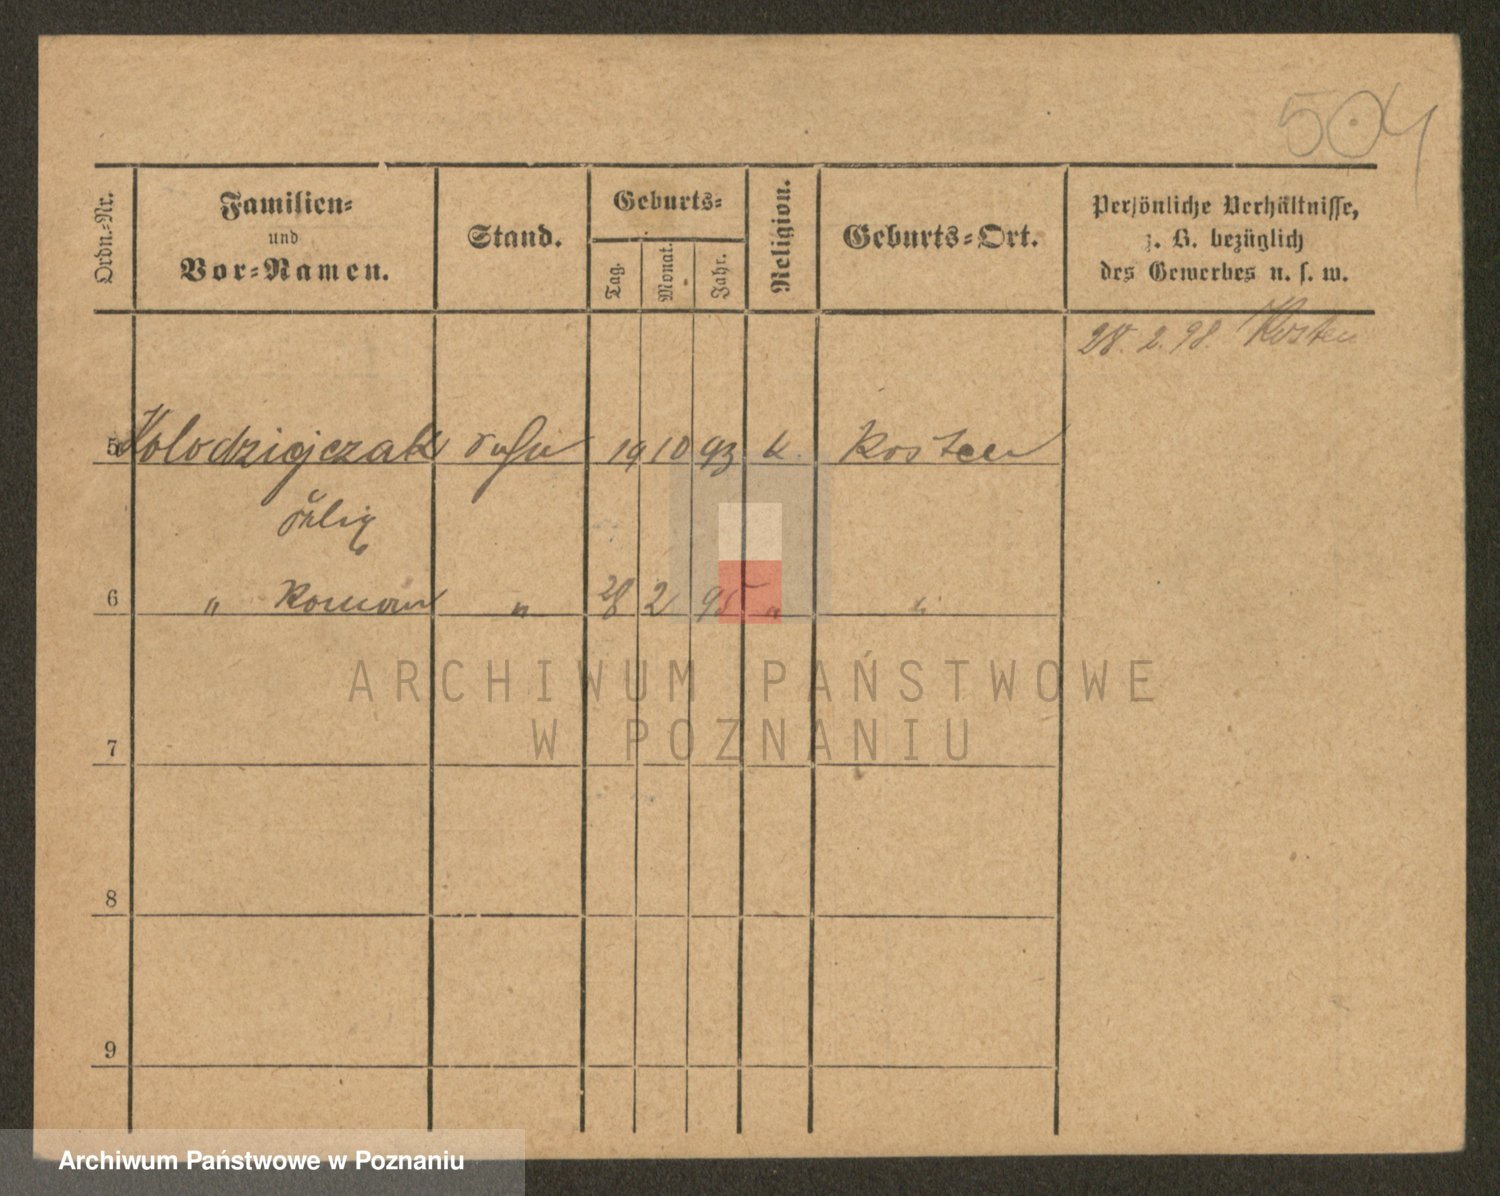 504
Ordn.-Nr.
Familien-
und
Vor-Namen.
Stand.
Geburts-
Tag.
Monat.
Jahr.
Religion.
Geburts-Ort.
Persönliche Verhältnisse,
z. B. bezüglich
des Gewerbes u. s. w.
28. 2. 98. Kosten
5 Kolodziejczak 19 10 93 k. Kosten
6 " Roman " 28 2 95 " "
ARCHIWUM PAŃSTWOWE
W POZNANIU
7
8
9
Archiwum Państwowe w Poznaniu